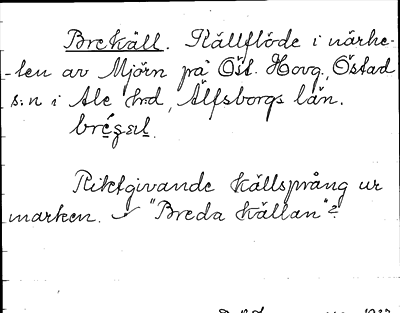 Brekäll. Källflöde i närhe-
-ten av Mjörn på Öst. Hovg., Östad
s:n i Ale hrd, Älfsborgs län.
Rikt givande källsprång ur
marken. "Breda källan"?